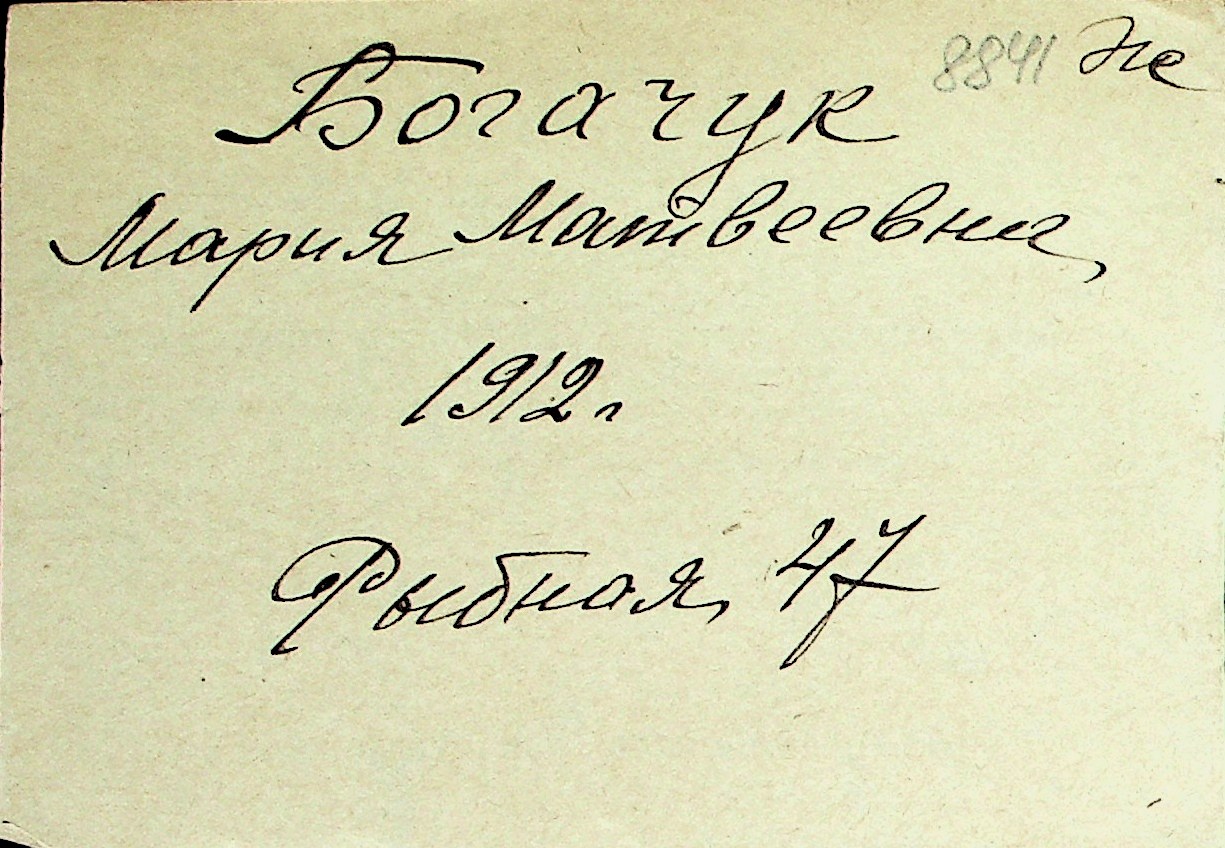 8841 Же
Богачук
Мария Матвеевна,
1912 г
Рыбная, 47